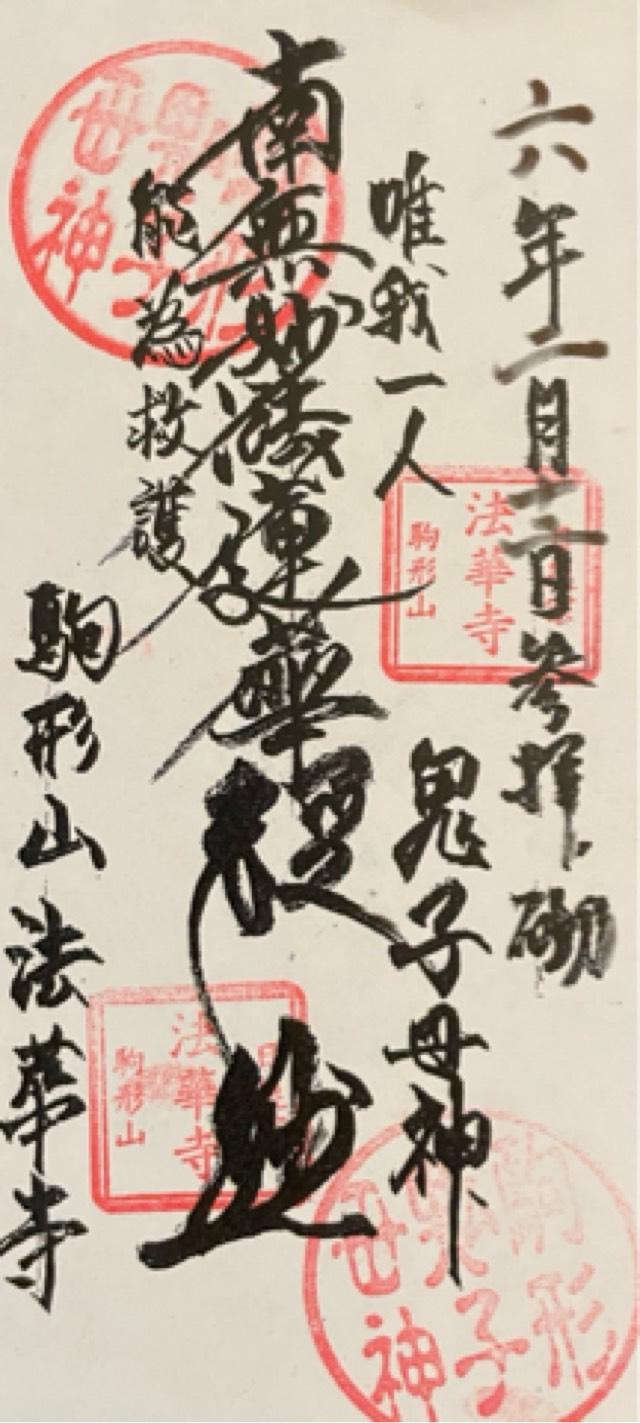 六年二月十二日参拝砌
唯我一人
鬼子母神
南無妙法蓮華経
妙
能為救護
駒形山法華寺
法華寺
駒形山
法華寺
駒形山
駒形
鬼子
母神
母神